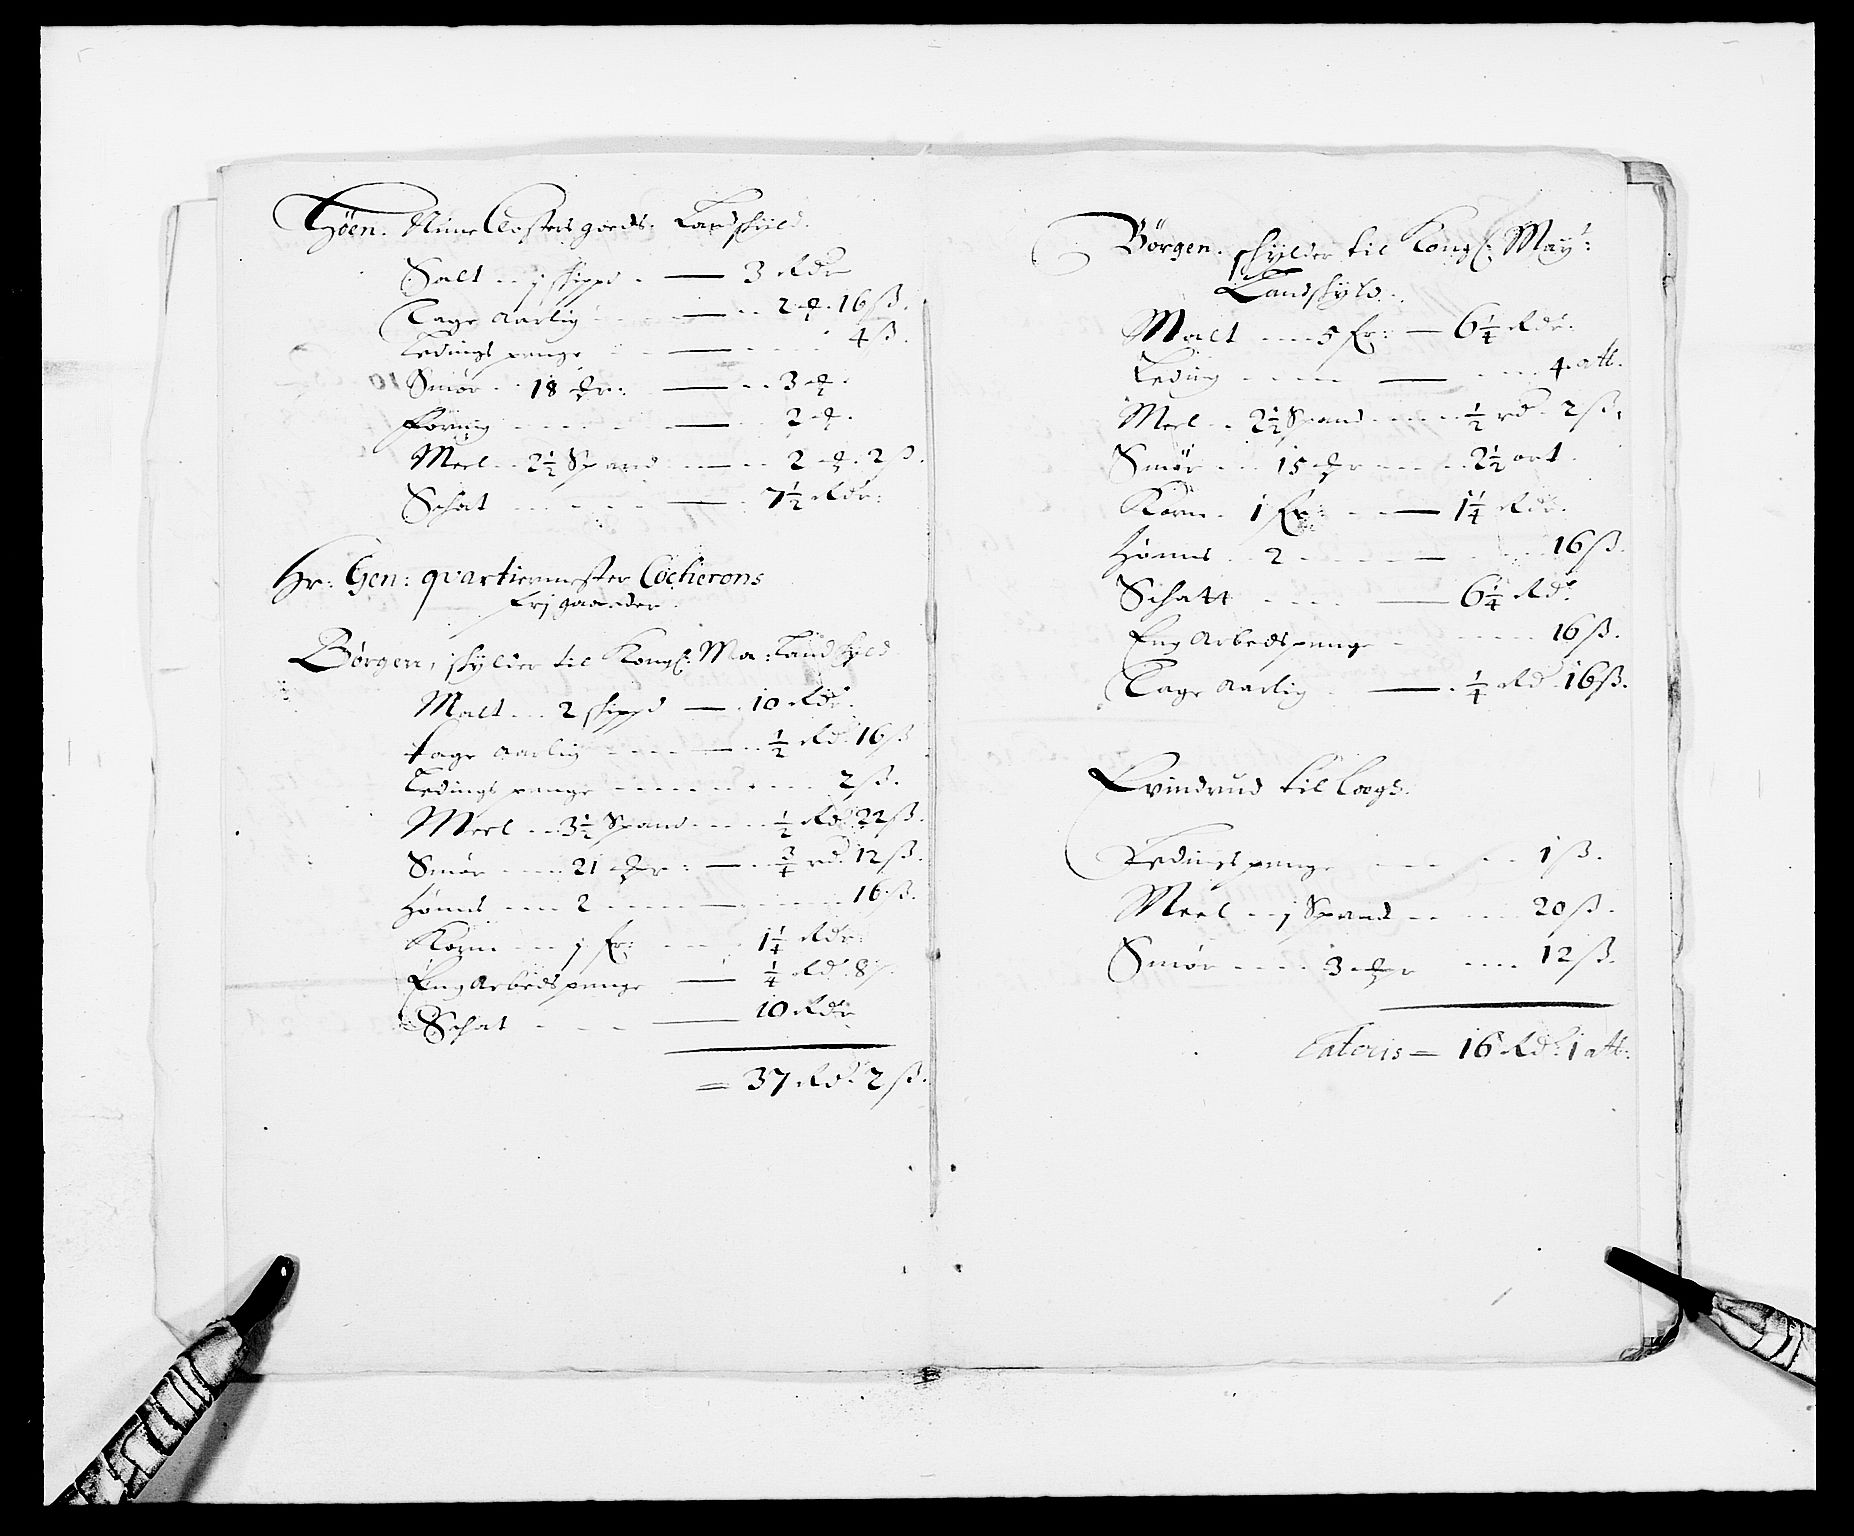 Høen. Nune Closters goeds. Landskyld.
Salt - j skippd - 3 Rdr
Tage aarlig - 16 ß.
Ledings penge - 4 ß.
Smør - 18 - 3
Foring - 2
Meel - 2½ Spand - 2 2 ß.
Schat - 7½ Rdr:
Hr: Gen: quartiermester Cocherons
frj gaarder.
Børgen, skylder til Kongl: Ma: Landskyld
Malt - 2 skippd - 10 Rdr.
Tage aarlig - ½ Rd. 16 ß
Ledings penge - 2 ß.
Meel - 3½ Spand - ½ Rd. 22 ß.
Smør - 21 - ¾ rd. 12 ß.
Høns - 2 - 16 ß.
Korn - j fr: - 1¼ Rdr.
Eng Arbeds penge - ¼ Rd. 8 ß.
Schat - 10 Rdr
= 37 Rd. 2 ß.
Børgen. skylder til Kongl: May:
Landskyld.
Malt - 5 fr: - 6¼ Rdr.
Leding - 4 alb.
Meel - 2½ Spand - ½ rd. 2 ß.
Smør - 15 - 2½ ort.
Korn. 1 fr: - 1¼ Rdr.
Høns - 2 - 16 ß.
Schatt - 6¼ Rdr
Eng Arbeds penge - 16 ß.
Tage aarlig - ¼ Rd. 16 ß.
Evindrud til Laegs.
Ledings penge - 1 ß.
Meel - j Spand - 20 ß.
Smør - 3 - 12 ß.
Lateris = 16 Rd. 1 alb: